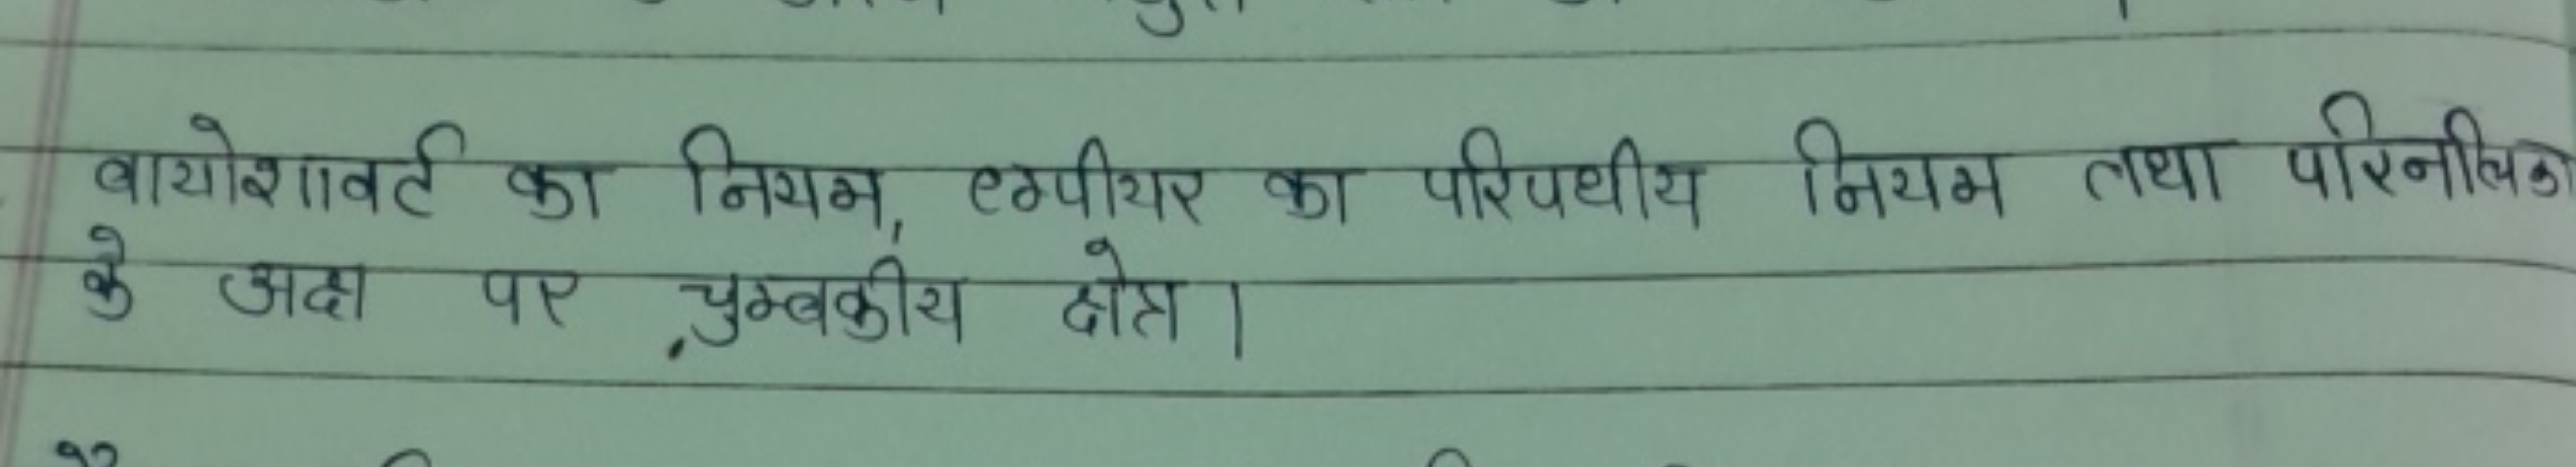 बायोशावर्ट का नियम, एम्पीयर का परिपथीय नियम तथा परिनलिका
के अक्ष पर चुम्बकीय क्षेत्र ।